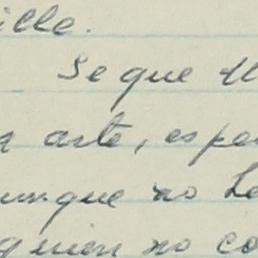 ille.
Se que el
a arte, espe
unque no he
quien no co